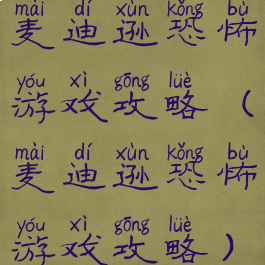 mài dí xùn kǒng bù
麦迪逊恐怖
yóu xì gōng lüè
游戏攻略（
mài dí xùn kǒng bù
麦迪逊恐怖
yóu xì gōng lüè
游戏攻略）